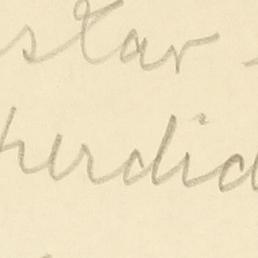 star -
perdid